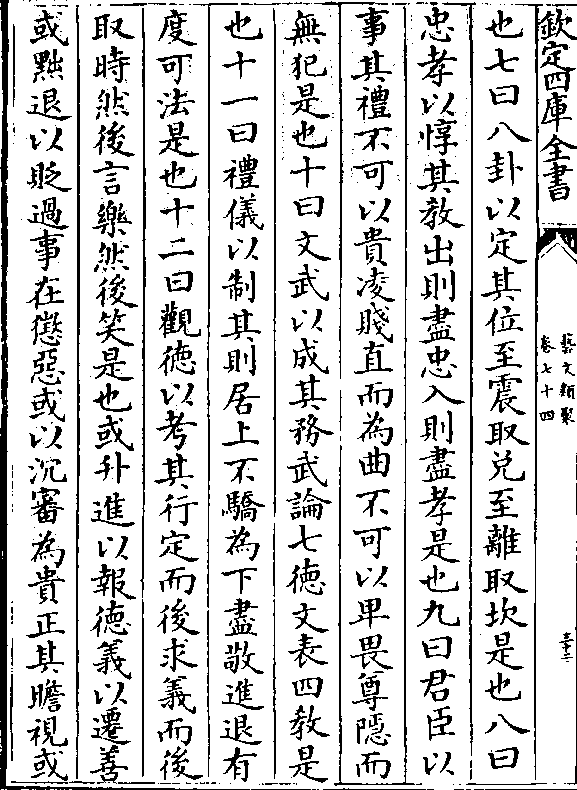 欽定四庫全書
藝文類聚
卷七十四
三十二
也七曰八卦以定其位至震取兌至離取坎是也八曰
忠孝以惇其教出則盡忠入則盡孝是也九曰君臣以
事其禮不可以貴凌賤直而為曲不可以卑畏尊隱而
無犯是也十曰文武以成其務武論七德文表四教是
也十一曰禮儀以制其則居上不驕為下盡敬進退有
度可法是也十二曰觀徳以考其行定而後求義而後
取時然後言樂然後笑是也或升進以報德義以遷善
或黜退以貶過事在懲惡或以沉審為貴正其瞻視或